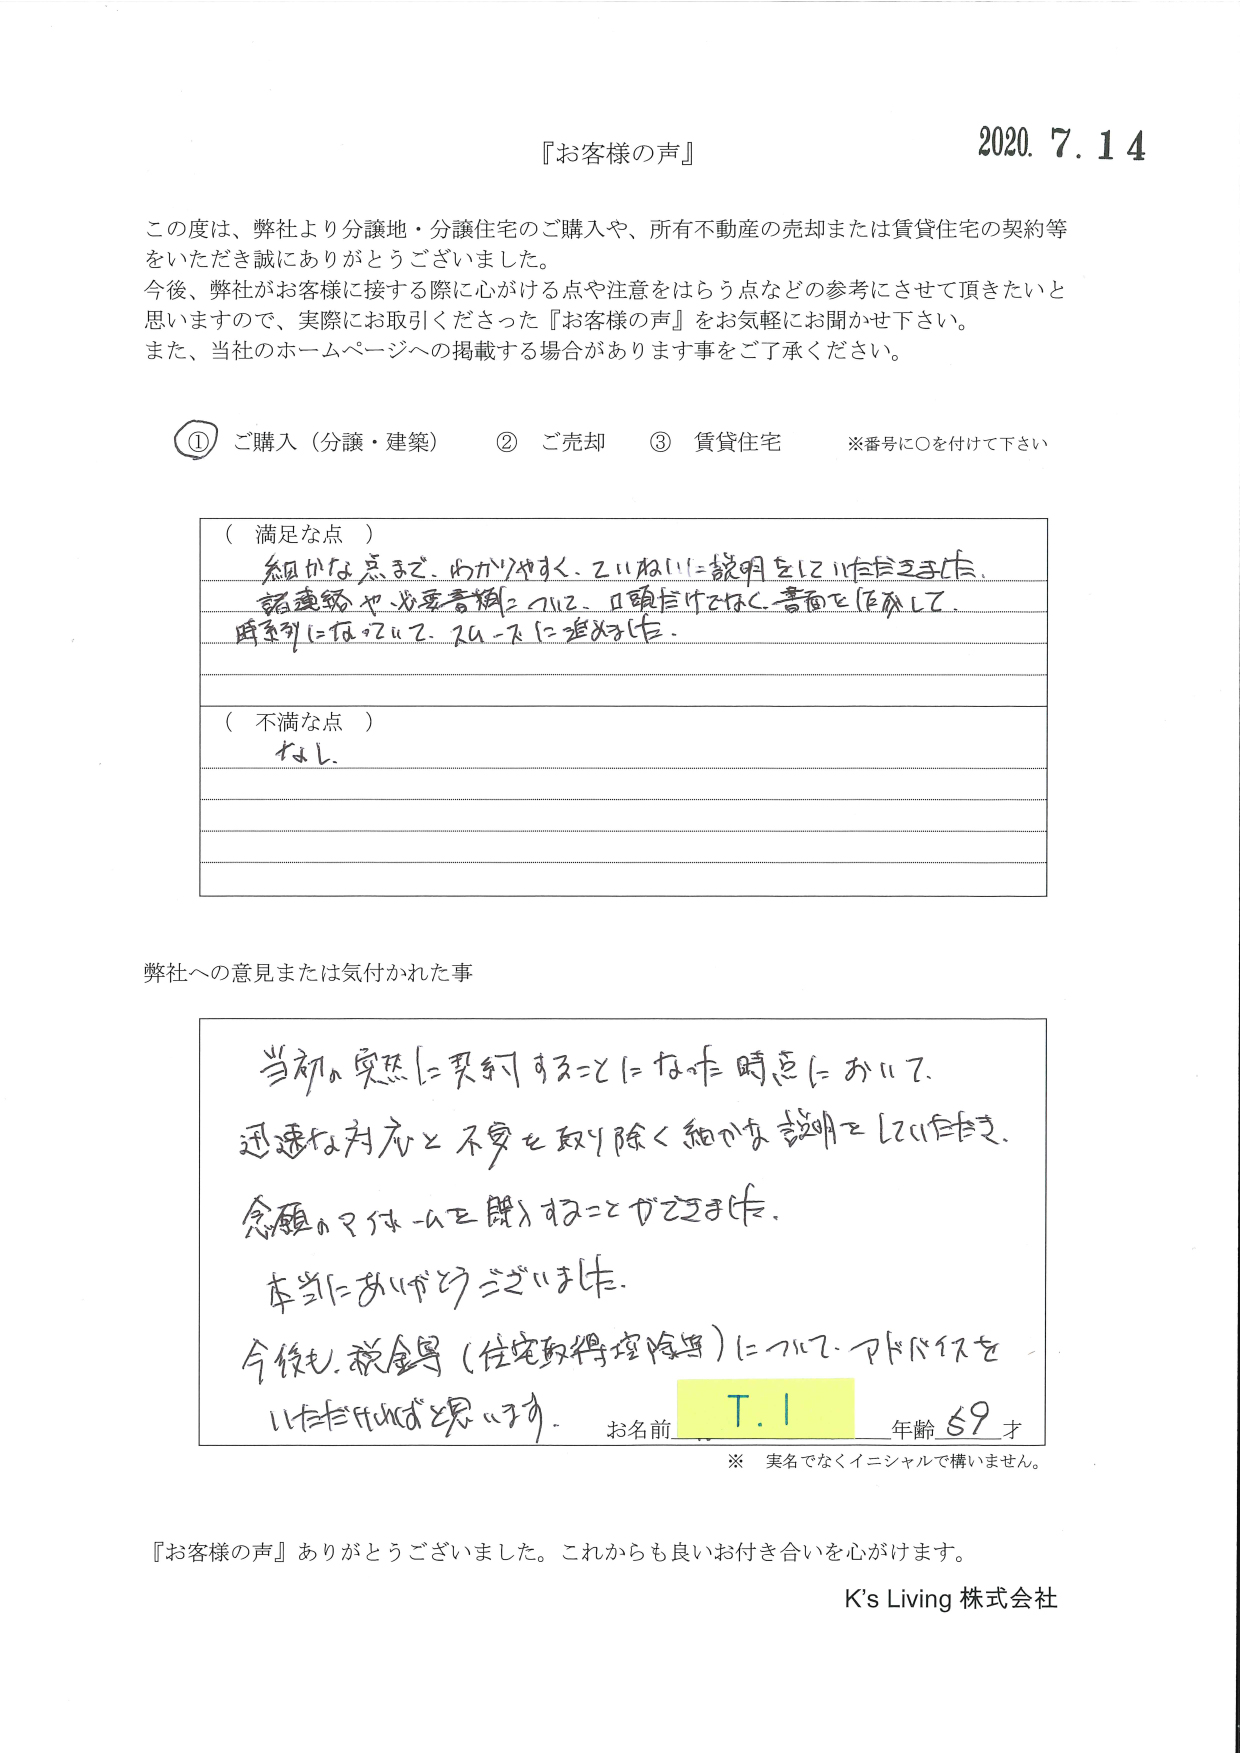 2020. 7. 14
『お客様の声』
この度は、弊社より分譲地・分譲住宅のご購入や、所有不動産の売却または賃貸住宅の契約等
をいただき誠にありがとうございました。
今後、弊社がお客様に接する際に心がける点や注意をはらう点などの参考にさせて頂きたいと
思いますので、実際にお取引くださった『お客様の声』をお気軽にお聞かせ下さい。
また、当社のホームページへの掲載する場合があります事をご了承ください。
① ご購入（分譲・建築） ② ご売却 ③ 賃貸住宅 ※番号に○を付けて下さい
（ 満足な点 ）
細かな点まで、わかりやすく、ていねいに説明をしていただきました。
諸連絡や必要書類について、口頭だけでなく、書面を作成して、
時系列になっていて、スムーズに進めました。
（ 不満な点 ）
なし.
弊社への意見または気付かれた事
当初の突然に契約することになった時点において、
迅速な対応と不安を取り除く細かな説明をしていただき、
念願のマイホームを購入することができました。
本当にありがとうございました。
今後も、税金等（住宅取得控除等）について、アドバイスを
いただければと思います。 お名前 T.I 年齢 59 才
※ 実名でなくイニシャルで構いません。
『お客様の声』ありがとうございました。これからも良いお付き合いを心がけます。
K's Living 株式会社